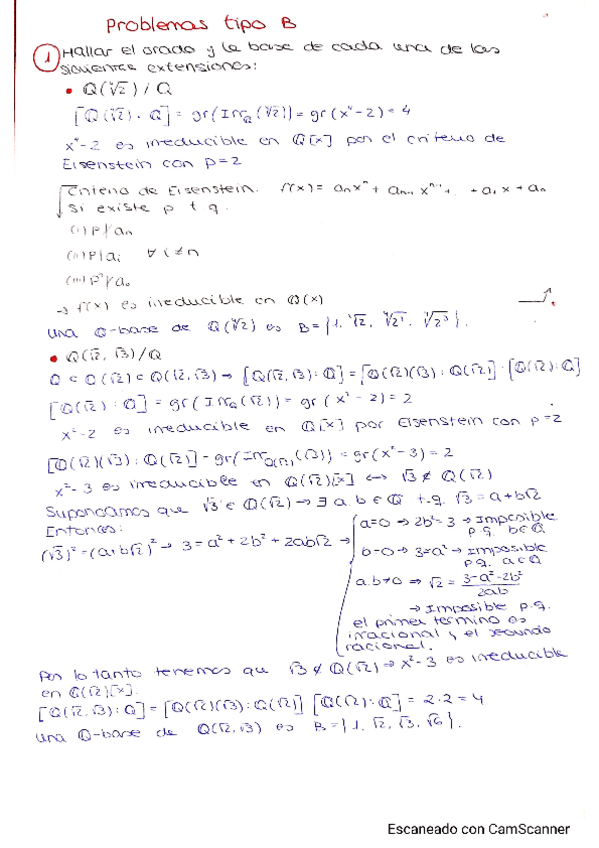 Problemas tipo B
① Hallar el grado y la base de cada una de las
siguientes extensiones:
• ℚ(∜2) / ℚ
[ℚ(∜2) : ℚ] = gr(Irr_ℚ(∜2)) = gr(x⁴-2) = 4
x⁴-2 es irreducible en ℚ[x] por el criterio de
Eisenstein con p=2
Criterio de Eisenstein. f(x) = aₙxⁿ + aₙ₋₁xⁿ⁻¹ + + a₁x + a₀
Si existe p t q.
(i) p∤aₙ
(ii) p|aᵢ ∀ i≠n
(iii) p²∤a₀
→ f(x) es irreducible en ℚ(x)
Una ℚ-base de ℚ(∜2) es B={1, ∜2, ∜2², ∜2³}.
• ℚ(√2, √3)/ℚ
ℚ ⊂ ℚ(√2) ⊂ ℚ(√2, √3) → [ℚ(√2, √3) : ℚ] = [ℚ(√2)(√3) : ℚ(√2)] · [ℚ(√2) : ℚ]
[ℚ(√2) : ℚ] = gr(Irr_ℚ(√2)) = gr(x²-2) = 2
x²-2 es irreducible en ℚ[x] por Eisenstein con p=2
[ℚ(√2)(√3) : ℚ(√2)] = gr(Irr_ℚ(√2)(√3)) = gr(x²-3) = 2
x²-3 es irreducible en ℚ(√2)[x] ⟷ √3 ∉ ℚ(√2)
Supongamos que √3 ∈ ℚ(√2) → ∃ a, b ∈ ℚ t.q. √3 = a+b√2
Entonces:
(√3)² = (a+b√2)² → 3 = a² + 2b² + 2ab√2 →
a=0 → 2b²=3 → Imposible
p.q. b∈ℚ
b=0 → 3=a² → Imposible
p.q. a∈ℚ
a.b≠0 → √2 = (3-a²-2b²)/2ab
→ Imposible p.q.
el primer termino es
irracional y el segundo
racional.
Por lo tanto tenemos que √3 ∉ ℚ(√2) → x²-3 es irreducible
en ℚ(√2)[x].
[ℚ(√2, √3) : ℚ] = [ℚ(√2)(√3) : ℚ(√2)] [ℚ(√2) : ℚ] = 2·2 = 4
Una ℚ-base de ℚ(√2, √3) es B={1, √2, √3, √6}.
Escaneado con CamScanner